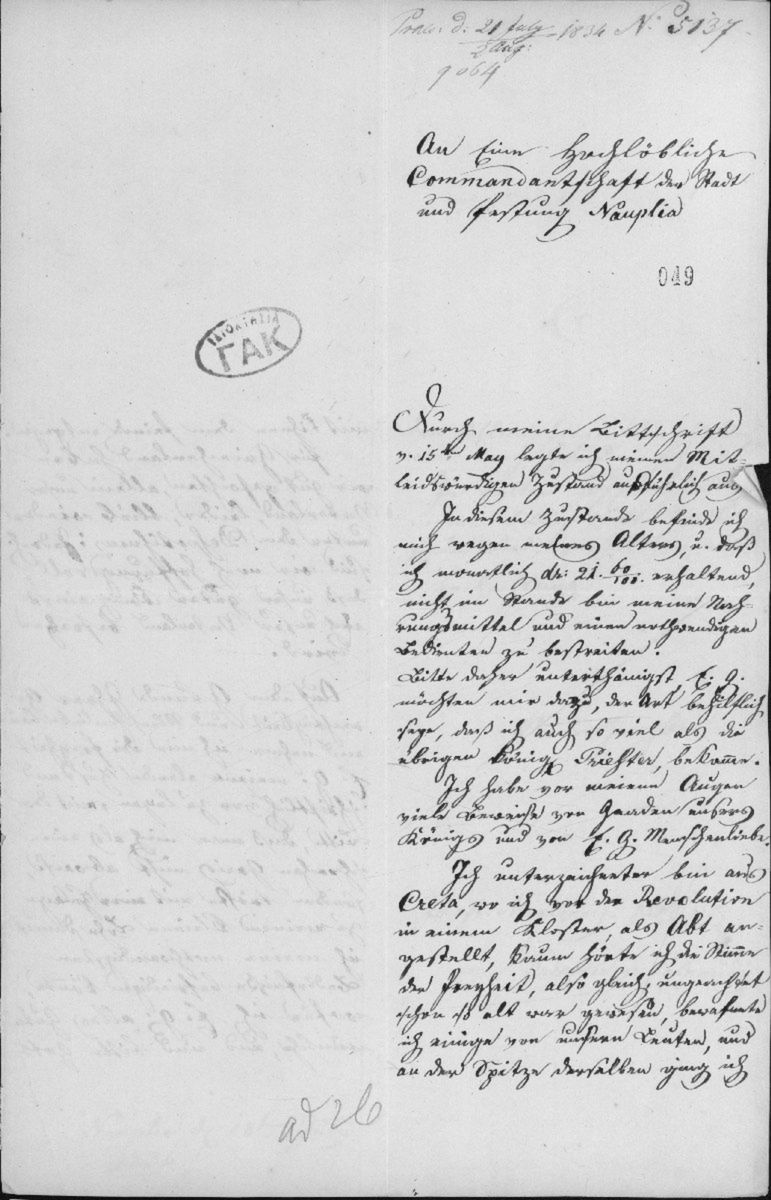 Präs: d: 21 July 1834 N: 5137
2 Aug:
9064
An Eine Hochlöbliche
Commandantschaft der Stadt
und Festung Nauplia
049
ΙΔΙΟΚΤΗΣΙΑ
ΓΑΚ
Durch meine Bittschrift
v. 15ten May legte ich meinen Mit-
leidswürdigen Zustand ausführlich aus,
In diesem Zustande befinde ich
mich wegen meines Alters, u. daß
ich monatlich dr: 21 60/100 erhaltend,
nicht im Stande bin meine Nah-
rungsmittel und einen nothwendigen
Bedienten zu bestreiten.
Bitte daher unterthänigst, E. G.
möchten mir dazu, der Art behilflich
seye, daß ich auch so viel als die
übrigen König. Priester, bekomme.
Ich habe vor meinen Augen
viele Beweise von Gnaden unsers
Königs und von E. G. Menschenliebe.
Ich unterzeichneter bin aus
Creta, wo ich vor der Revolution
in einem Kloster als Abt an-
gestellt, kaum hörte ich die Stimme
der Freyheit, also gleich, ungeachtet
schon so alt war gewesen, bewafnete
ich einige von unsern Leuten, und
an der Spitze derselben ging ich
ad 26